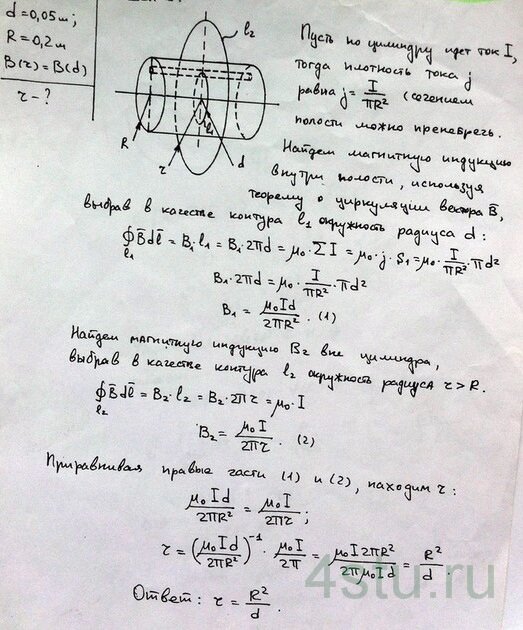 d = 0,05 м;
R = 0,2 м
B(τ) = B(d)
τ - ?
l₂
l₁
R
τ
d
Пусть по цилиндру идет ток I,
тогда плотность тока j
равна j = I/πR² (сечением
полости можно пренебречь.
Найдем магнитную индукцию
внутри полости, используя
теорему о циркуляции вектора B̄,
выбрав в качестве контура l₁ окружность радиуса d:
∮B̄dl̄ = B₁·l₁ = B₁·2πd = μ₀·ΣI = μ₀·j·S₁ = μ₀·I/πR²·πd²
l₁
B₁·2πd = μ₀·I/πR²·πd²
B₁ = μ₀Id/2πR². (1)
Найдем магнитную индукцию B₂ вне цилиндра,
выбрав в качестве контура l₂ окружность радиуса τ > R.
∮B̄dl̄ = B₂·l₂ = B₂·2πτ = μ₀·I
l₂
B₂ = μ₀I/2πτ. (2)
Приравнивая правые части (1) и (2), находим τ:
μ₀Id/2πR² = μ₀I/2πτ;
τ = (μ₀Id/2πR²)⁻¹·μ₀I/2π = μ₀I2πR²/2πμ₀Id = R²/d.
Ответ: τ = R²/d.
4stu.ru